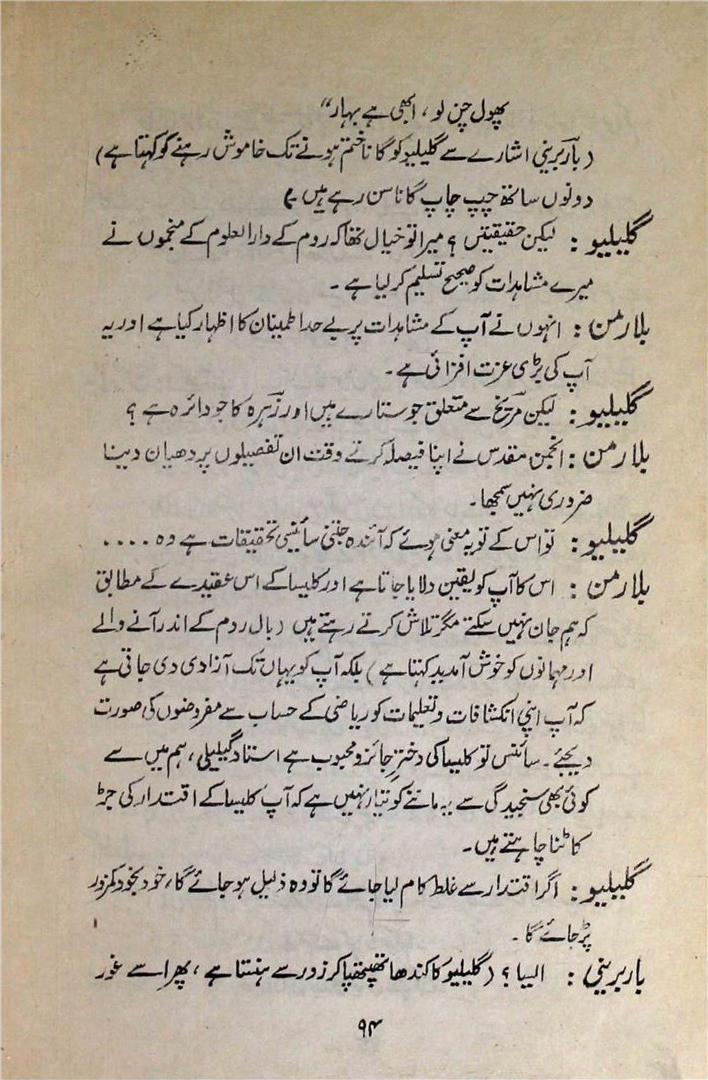 پھول چن لو ، ابھی ہے بہار"
( باربرینی اشارے سے گلیلیو کو گانا ختم ہونے تک خاموش رہنے کو کہتا ہے )
دونوں ساتھ چپ چاپ گانا سن رہے ہیں ۔ )
گلیلیو : لیکن حقیقتیں ؟ میرا تو خیال تھا کہ روم کے دارالعلوم کے منجموں نے
میرے مشاہدات کو صحیح تسلیم کر لیا ہے ۔
بلارمن : انہوں نے آپ کے مشاہدات پر بے حد اطمینان کا اظہار کیا ہے اور یہ
آپ کی بڑی عزت افزائی ہے ۔
گلیلیو : لیکن مریخ سے متعلق جو ستارے ہیں اور زہرہ کا جو دائرہ ہے ؟
بلارمن : انجمن مقدس نے اپنا فیصلہ کرتے وقت ان تفصیلوں پر دھیان دینا
ضروری نہیں سمجھا ۔
گلیلیو : تو اس کے تو یہ معنی ہوئے کہ آئندہ جتنی سائنسی تحقیقات ہے وہ ....
بلارمن : اس کا آپ کو یقین دلایا جاتا ہے اور کلیسا کے اس عقیدے کے مطابق
کہ ہم جان نہیں سکتے مگر تلاش کرتے رہتے ہیں ( بال روم کے اندر آنے والے
اور مہمانوں کو خوش آمدید کہتا ہے ) بلکہ آپ کو یہاں تک آزادی دی جاتی ہے
کہ آپ اپنی انکشافات و تعلیمات کو ریاضی کے حساب سے مفروضوں کی صورت
دیجئے ۔ سائنس تو کلیسا کی دختر جائز و محبوب ہے استاد گیلیلی ، ہم میں سے
کوئی بھی سنجیدگی سے یہ ماننے کو تیار نہیں ہے کہ آپ کلیسا کے اقتدار کی جڑ
کاٹنا چاہتے ہیں ۔
گلیلیو : اگر اقتدار سے غلط کام لیا جائے گا تو وہ ذلیل ہو جائے گا ، خود بخود کمزور
پڑ جائے گا ۔
باربرینی : ایسا ؟ ( گلیلیو کا کندھا تھپتھپا کر زور سے ہنستا ہے ، پھر اسے غور
۹۴